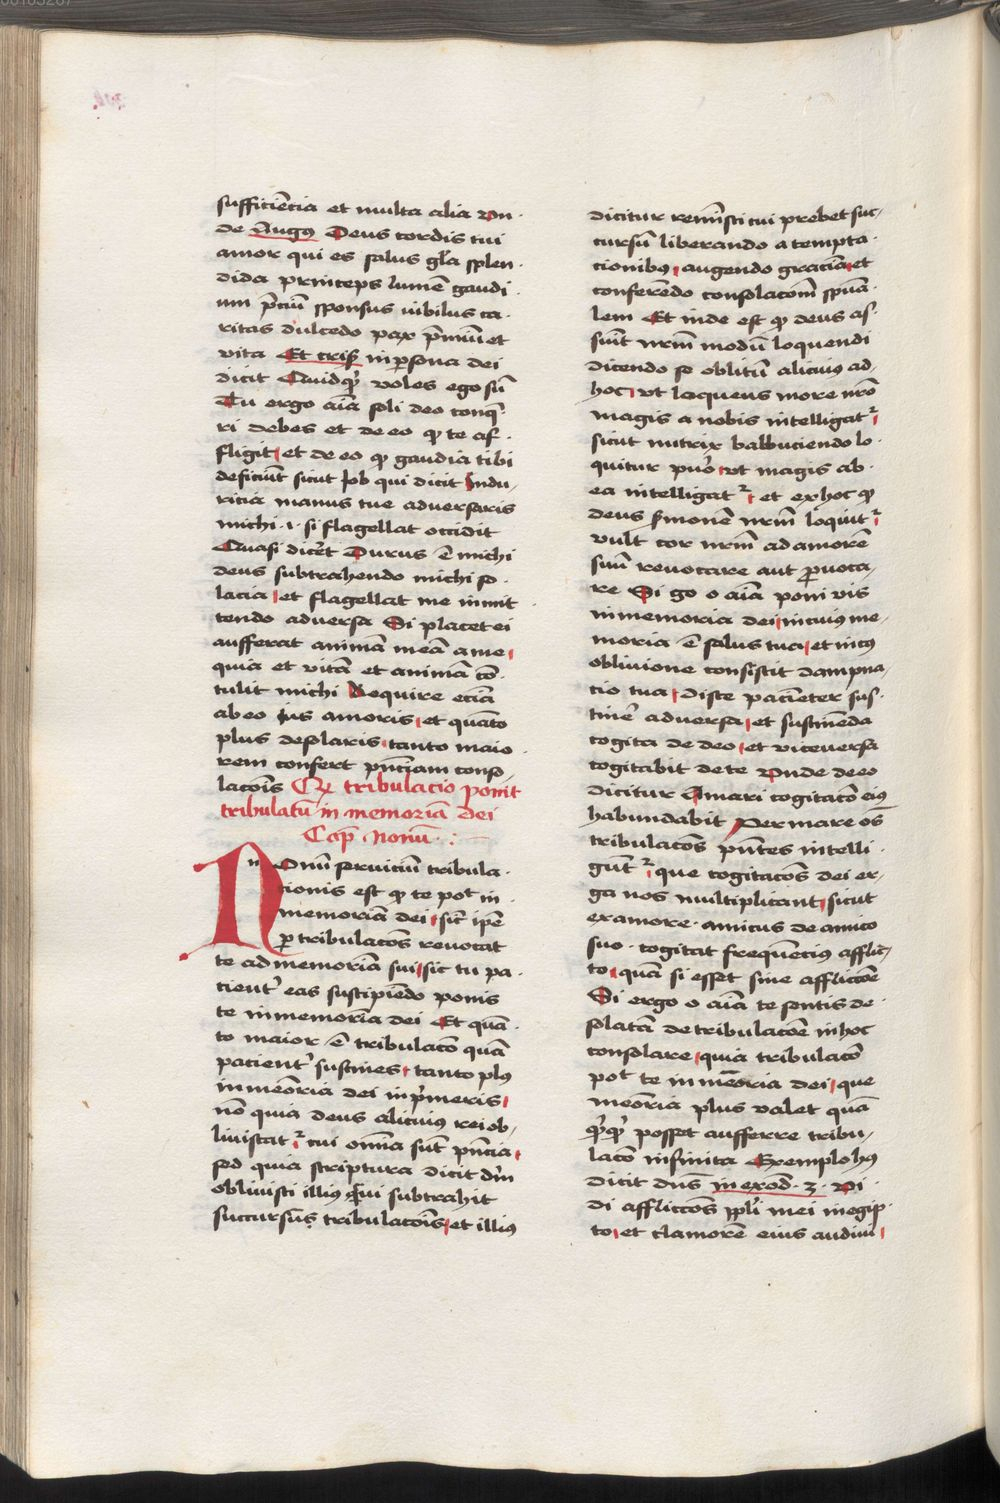 sufficiēcia et multa alia vn
de Augꝰ Deus cordis tui
amor qui es salus gl̄a splen
dida princeps lumē gaudi
um p̄ciū sponsus uibilus ca
ritas dulcedo pax p̄miū et
vita Et crisꝰ in ꝑsona dei
dicit Quidqͥd voles ego sū
Tu ergo aīa soli deo conq̄
ri debes et de eo qꝫ te af
fligit et de eo qꝫ gaudia tibi
deficiūt sicut Job qui dicit Indu
ricia manus tue adversaris
michi .i. si flagellat occidit
Quasi dicēt Durus ē michi
deus subtrahendo michi so
lacia et flagellat me inmit
tendo adversa Si placet ei
aufferat animā meā a me
quia et vitā et animā cō
tulit michi Require eciā
ab eo ius amoris et quāto
plus desolaris tanto maio
rem confert pn̄ciam conso
lacōis Qꝫ tribulacio ponit
tribulatū in memoriā dei
Cap̄. nonū .
NOnū seruiciū tribula
cionis est qꝫ te pōt in
memoriā dei sic̄ ipē
ꝑ tribulacōs reuocat
te ad memoriā sui sic tu pa
cient̄ eas suscipiēdo ponis
te in memoriā dei Et quā
to maior ē tribulacō quā
pacient̄ sustines tanto plꝰ
in meōria dei inp̄meris
nō quia deus alicuius rei ob
liuiscat̄ cui om̄ia sūt pn̄cia
sed quia scriptura dicit dn̄m
obliuisci illiꝰ cui subtrahit
succursus tribulacōis et illiꝰ
dicitur reminisci cui prebet suc
cursū liberando a tempta
cionibꝰ augendo graciā et
conferēdo consolacōm sp̄uā
lem Et inde est qꝫ deus as
sūit nr̄m modū loquendi
dicendo se oblitū alicuiꝰ ad
hoc vt loquens more nr̄o
magis a nobis intelligat̄
sicut nutrix balbuciendo lo
quitur puero vt magis ab
ea intelligat̄ et ex hoc qꝫ
deus s̄monē nr̄m loquit̄
vult cor nr̄m ad amorē
suū reuocare aut ꝓuoca
re Si g̊ o aīa poni vis
in memoria dei in cuiꝰ me
moria ē salus tua et in cꝰ
obliuione consistit dampna
cio tua Disce pacīeter sus
tinē adversa et sustinēda
cogita de deo et viceversa
cogitabit de te Vnde de eo
dicitur Amari cogitacō eiꝰ
habundabit Per mare oēs
tribulacōs pn̄tes intelli
gūt̄ que cogitacōs dei er
ga nos multiplicant sicut
ex amore amicus de amico
suo cogitat frequēcius afflic
to quā si esset sine affliccōe
Si ergo o aīa te sentis de
solatā de tribulacōe in hoc
consolare quia tribulacō
pōt te in meōria dei que
meōria plus valet quā
qͥdqͥd posset aufferre tribu
lacō infinita Exemplo hꝰ
dicit dn̄s in exod. 3. Vi
di affliccōs pp̄li mei in egip
to et clamorē eius audiui